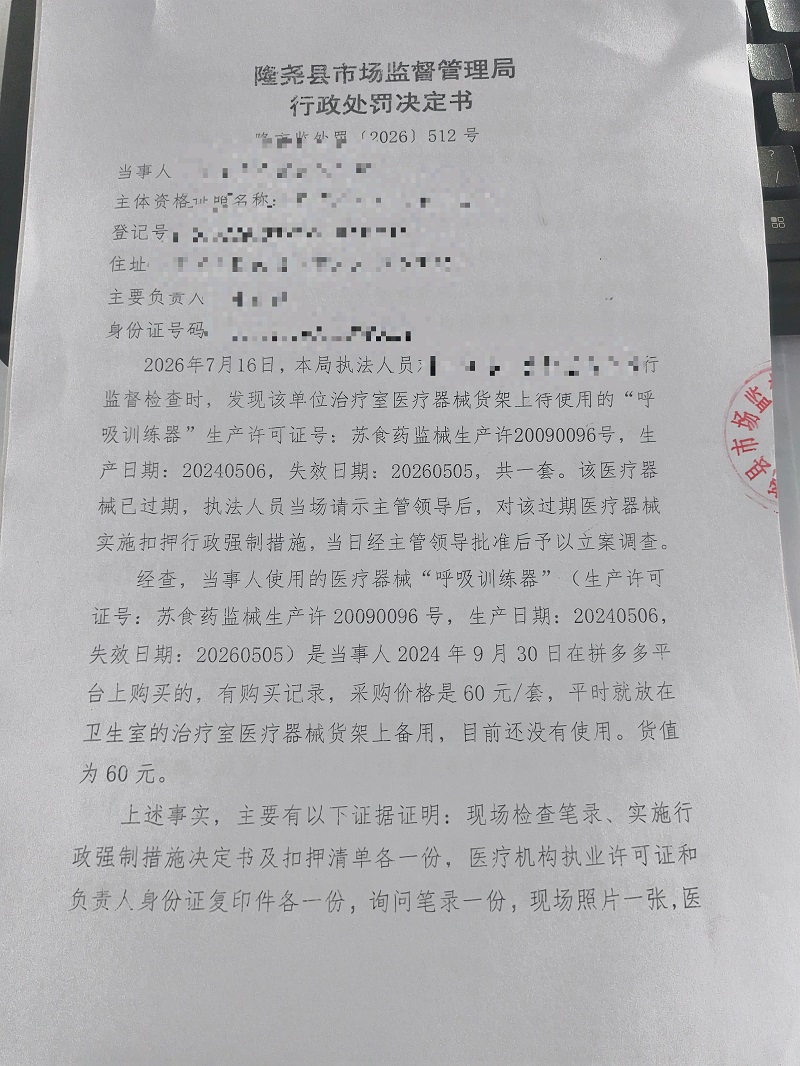 隆尧县市场监督管理局
行政处罚决定书
隆市监处罚〔2026〕512 号
当事人
主体资格证明名称：
登记号
住址
主要负责人
身份证号码
2026年7月16日，本局执法人员对 行
监督检查时，发现该单位治疗室医疗器械货架上待使用的“呼
吸训练器”生产许可证号：苏食药监械生产许20090096号，生
产日期：20240506，失效日期：20260505，共一套。该医疗器
械已过期，执法人员当场请示主管领导后，对该过期医疗器械
实施扣押行政强制措施，当日经主管领导批准后予以立案调查。
经查，当事人使用的医疗器械“呼吸训练器”（生产许可
证号：苏食药监械生产许 20090096 号，生产日期：20240506，
失效日期：20260505）是当事人 2024 年 9 月 30 日在拼多多平
台上购买的，有购买记录，采购价格是 60 元/套，平时就放在
卫生室的治疗室医疗器械货架上备用，目前还没有使用。货值
为 60 元。
上述事实，主要有以下证据证明：现场检查笔录、实施行
政强制措施决定书及扣押清单各一份，医疗机构执业许可证和
负责人身份证复印件各一份，询问笔录一份，现场照片一张，医
县市场监